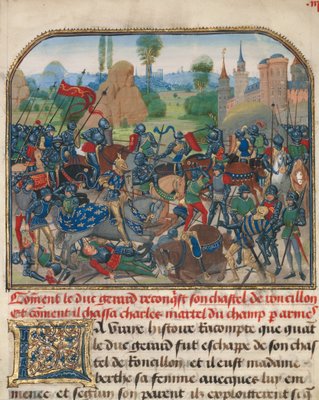 Coment le duc gerard reconq̃st son chastel de roncillon
Et cõment il chassa charles martel du champ p armes
La vraye histoire racompte que quãt
le duc gerard fut eschappe de son chas
tel de Roncillon, et il eust madame
berthe sa femme auecques luy em
menee et selon son parent il exploitterent si q̃